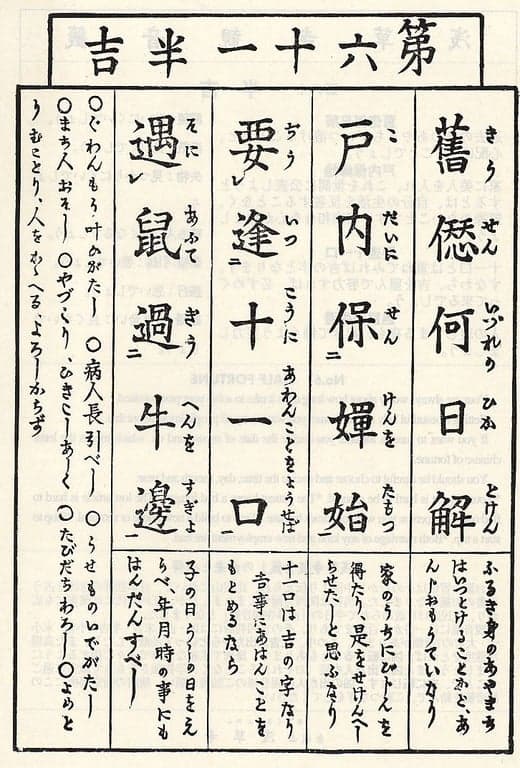 第六十一半吉
きう せん いづれの ひか とけん
舊愆何日解
ふるき身のあやまち
はいつとけることかと、あ
んじおもうていなり
こ だいに せん けんを たもつ
戸内保二嬋始
家のうちにびじんを
得たり、是をせけんへし
らせたしと思ふなり
ぢう いつ こうに あわんことをようせば
要レ逢二十一口
十一口は吉の字なり
吉事にあはんことを
もとめるなら
そに あふて きう へんを すぎよ
遇レ鼠過二牛邊一
子の日うしの日をえ
らべ年月時の事にも
はんだんすべし
〇ぐわんもう叶ひがたし 〇病人長引べし 〇うせものいでがたし
〇まち人おそし 〇やづくり、ひきこしあしく 〇たびだちわろし〇よめと
りむことり、人をかゝへるよろしからず